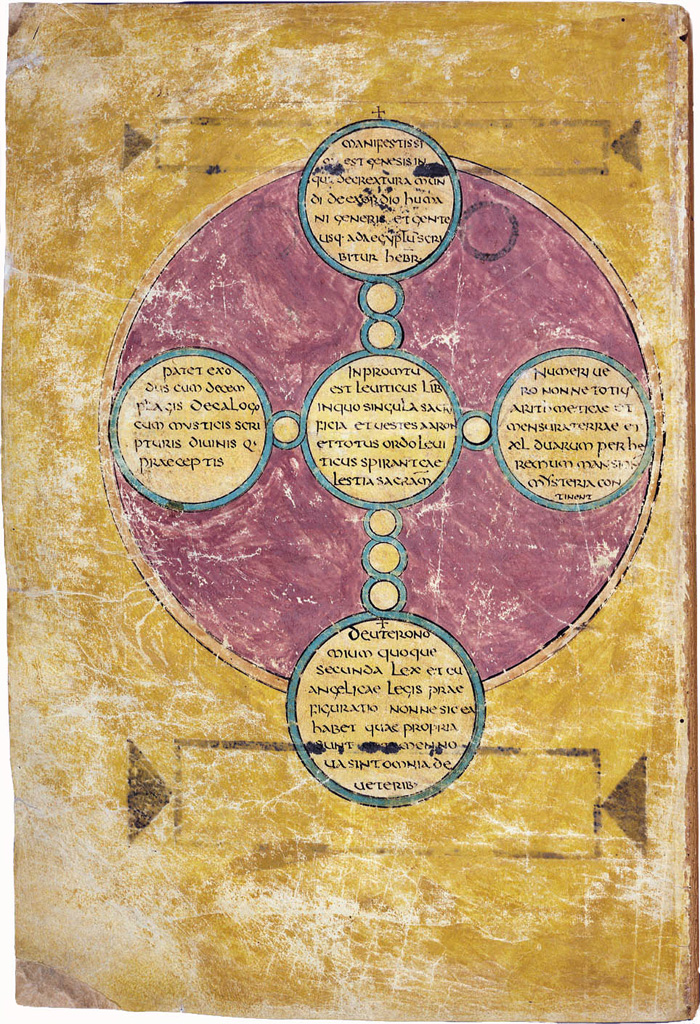 ✝
MANIFESTISSI
Q: EST GENESIS IN
QU: DE CREATURA MUN
DI DE EXORDIO HUMA
NI GENERIS ET GENTE
USQ: AD AEGYPTŪ SCRI
BITUR HEBR
PATET EXO
DUS CUM DECEM
PLAGIS DECALOGO
CUM MYSTICIS SCRI
PTURIS DIUINIS Q:
PRAECEPTIS
IN PROMTU
EST LEUITICUS LIB
IN QUO SINGULA SACRI
FICIA ET UESTES AARON
ET TOTUS ORDO LEUI
TICUS SPIRANT CAE
LESTIA SACRAM
NUMERI UE
RO NONNE TOTIUS
ARITHMETICAE ET
MENSURA TERRAE ET
XL DUARUM PER HE
REMUM MANSION
MYSTERIA CON
TINENT
✝
DEUTERONO
MIUM QUOQUE
SECUNDA LEX ET EU
ANGELICAE LEGIS PRAE
FIGURATIO NONNE SIC EA
HABET QUAE PROPRIA
SUNT MEN NO
UA SINT OMNIA DE
UETERIB: